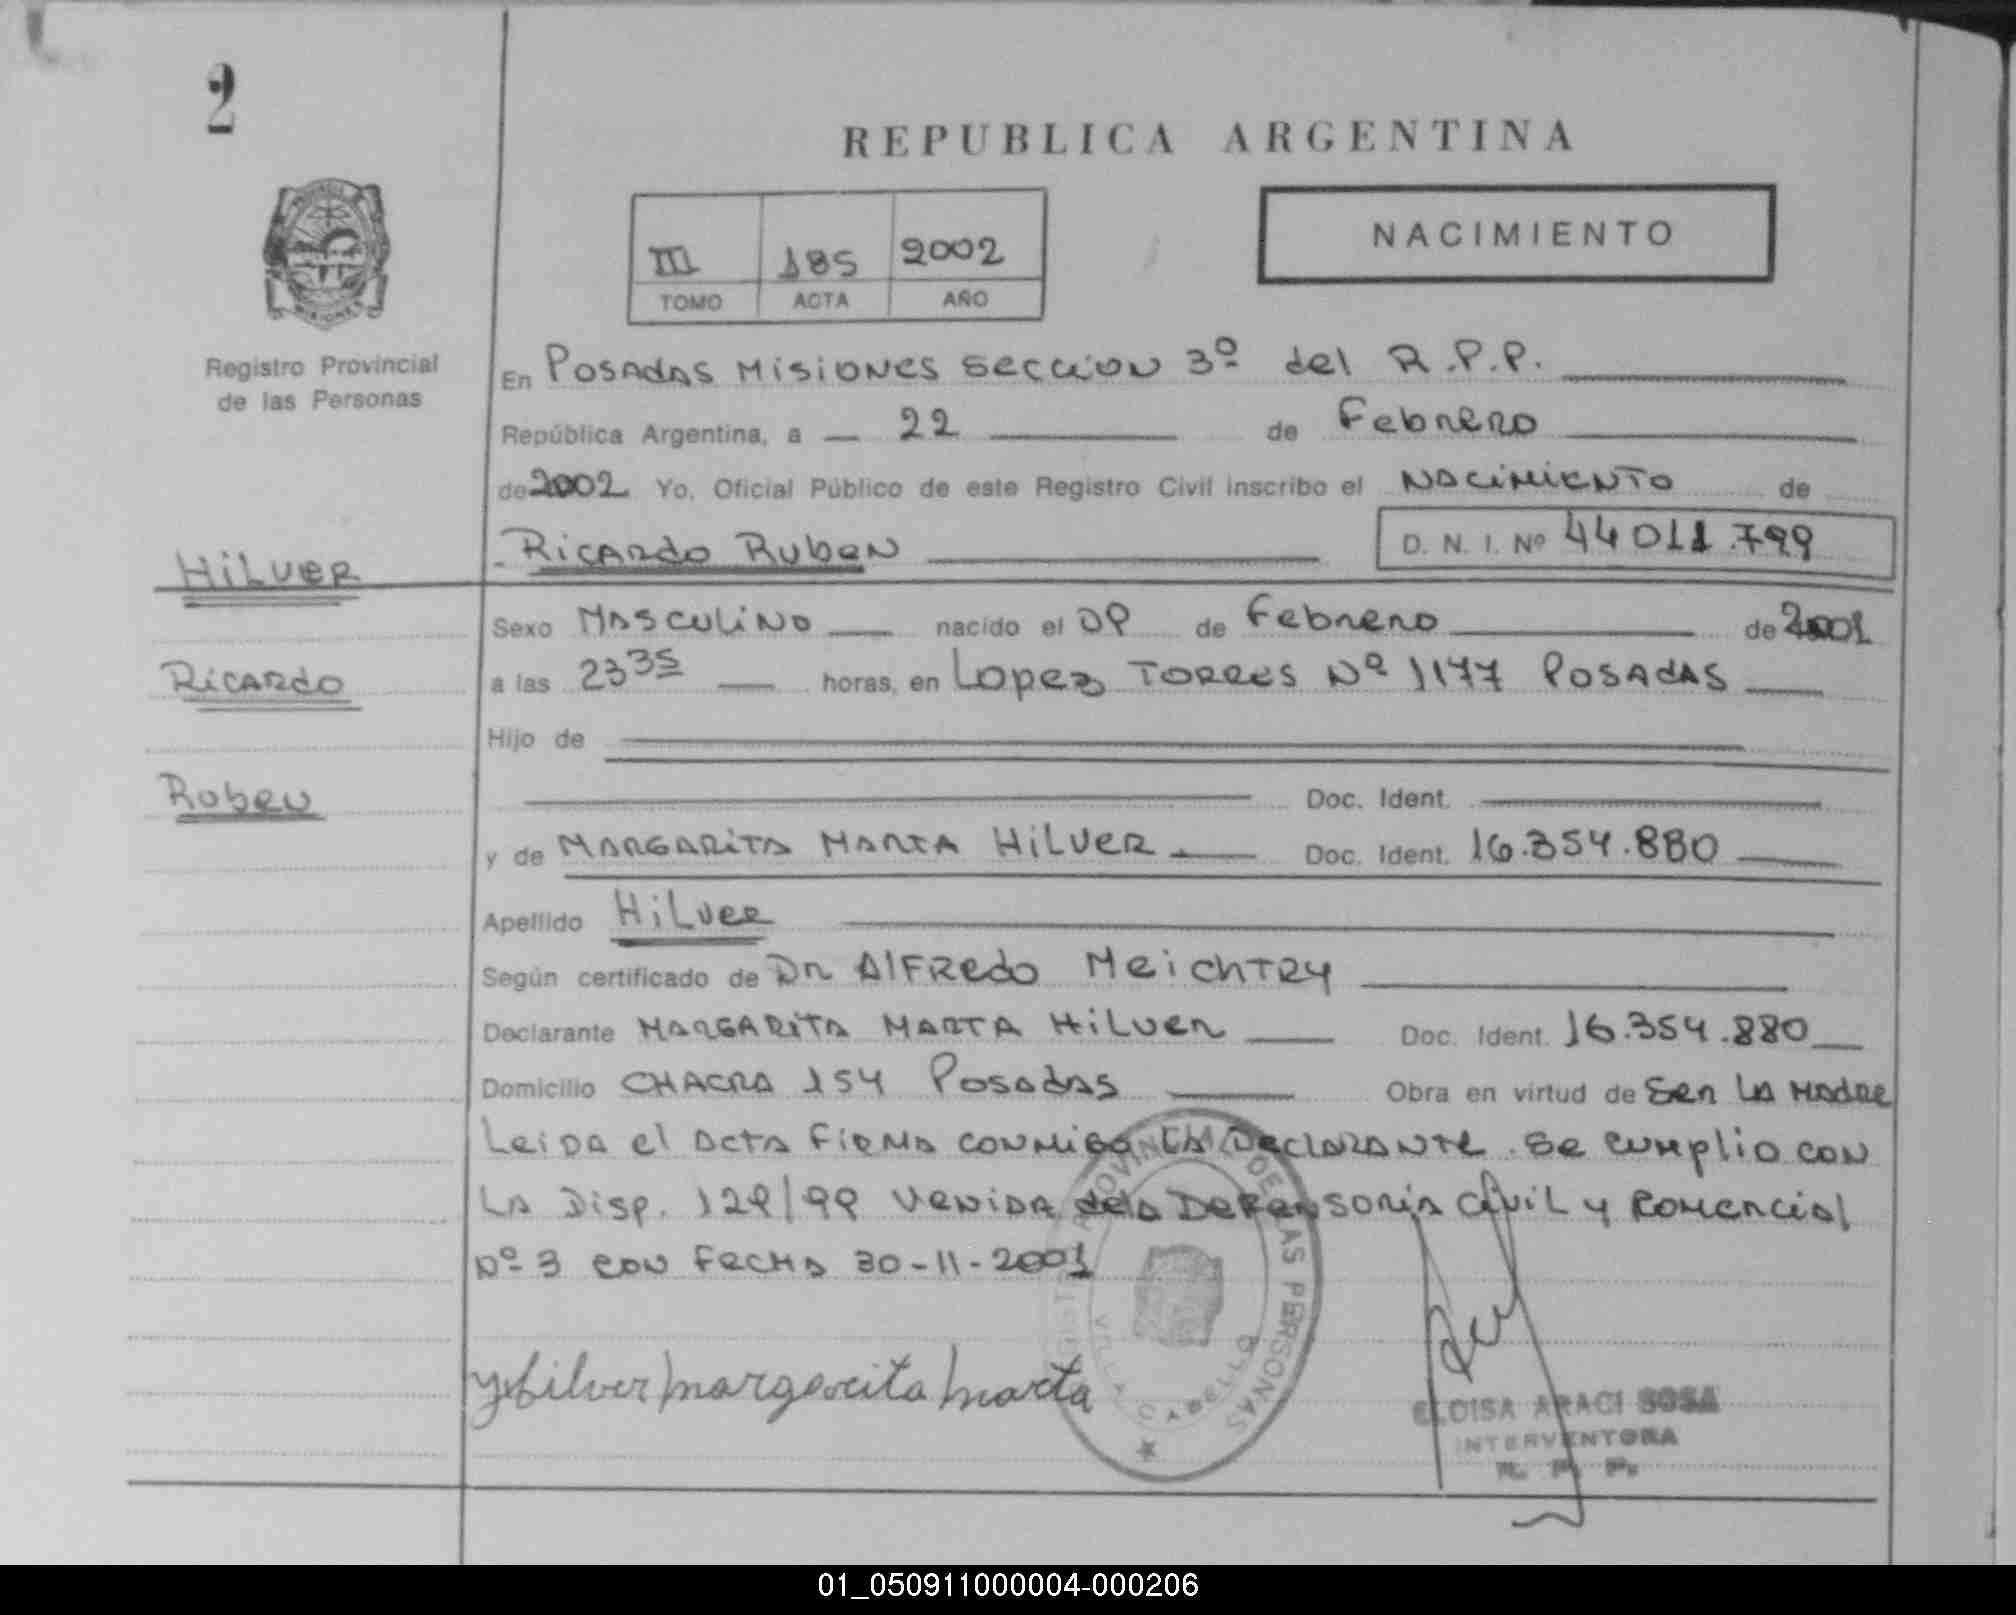 2
REPUBLICA ARGENTINA
III 185 2002
TOMO ACTA AÑO
NACIMIENTO
Registro Provincial
de las Personas
En Posadas Misiones Seccion 3º del R.P.P.
República Argentina, a 22 de Febrero
de 2002 Yo, Oficial Público de este Registro Civil inscribo el Nacimiento de
Ricardo Ruben D. N. I. Nº 44011.799
Hilver
Sexo Masculino nacido el 09 de Febrero de 2001
Ricardo
a las 23 35 horas, en Lopez Torres Nº 1177 Posadas
Hijo de
Ruben
Doc. Ident.
y de Margarita Marta Hilver Doc. Ident. 16.354.880
Apellido Hilver
Según certificado de Dr Alfredo Meichtry
Declarante Margarita Marta Hilver Doc. Ident. 16.354.880
Domicilio CHACRA 154 Posadas Obra en virtud de Ser La Madre
Leida el Acta Firma conmigo La Declarante. Se cumplio con
La Disp. 129/99 Venida dela Defensoria Civil y Comercial
Nº 3 con Fecha 30-11-2001
Hilver margarita marta
PROVINCIAL DE LAS PERSONAS
VILLA CABELLO
ELOISA ARACI SOSA
INTERVENTORA
R. P. P.
01_050911000004-000206